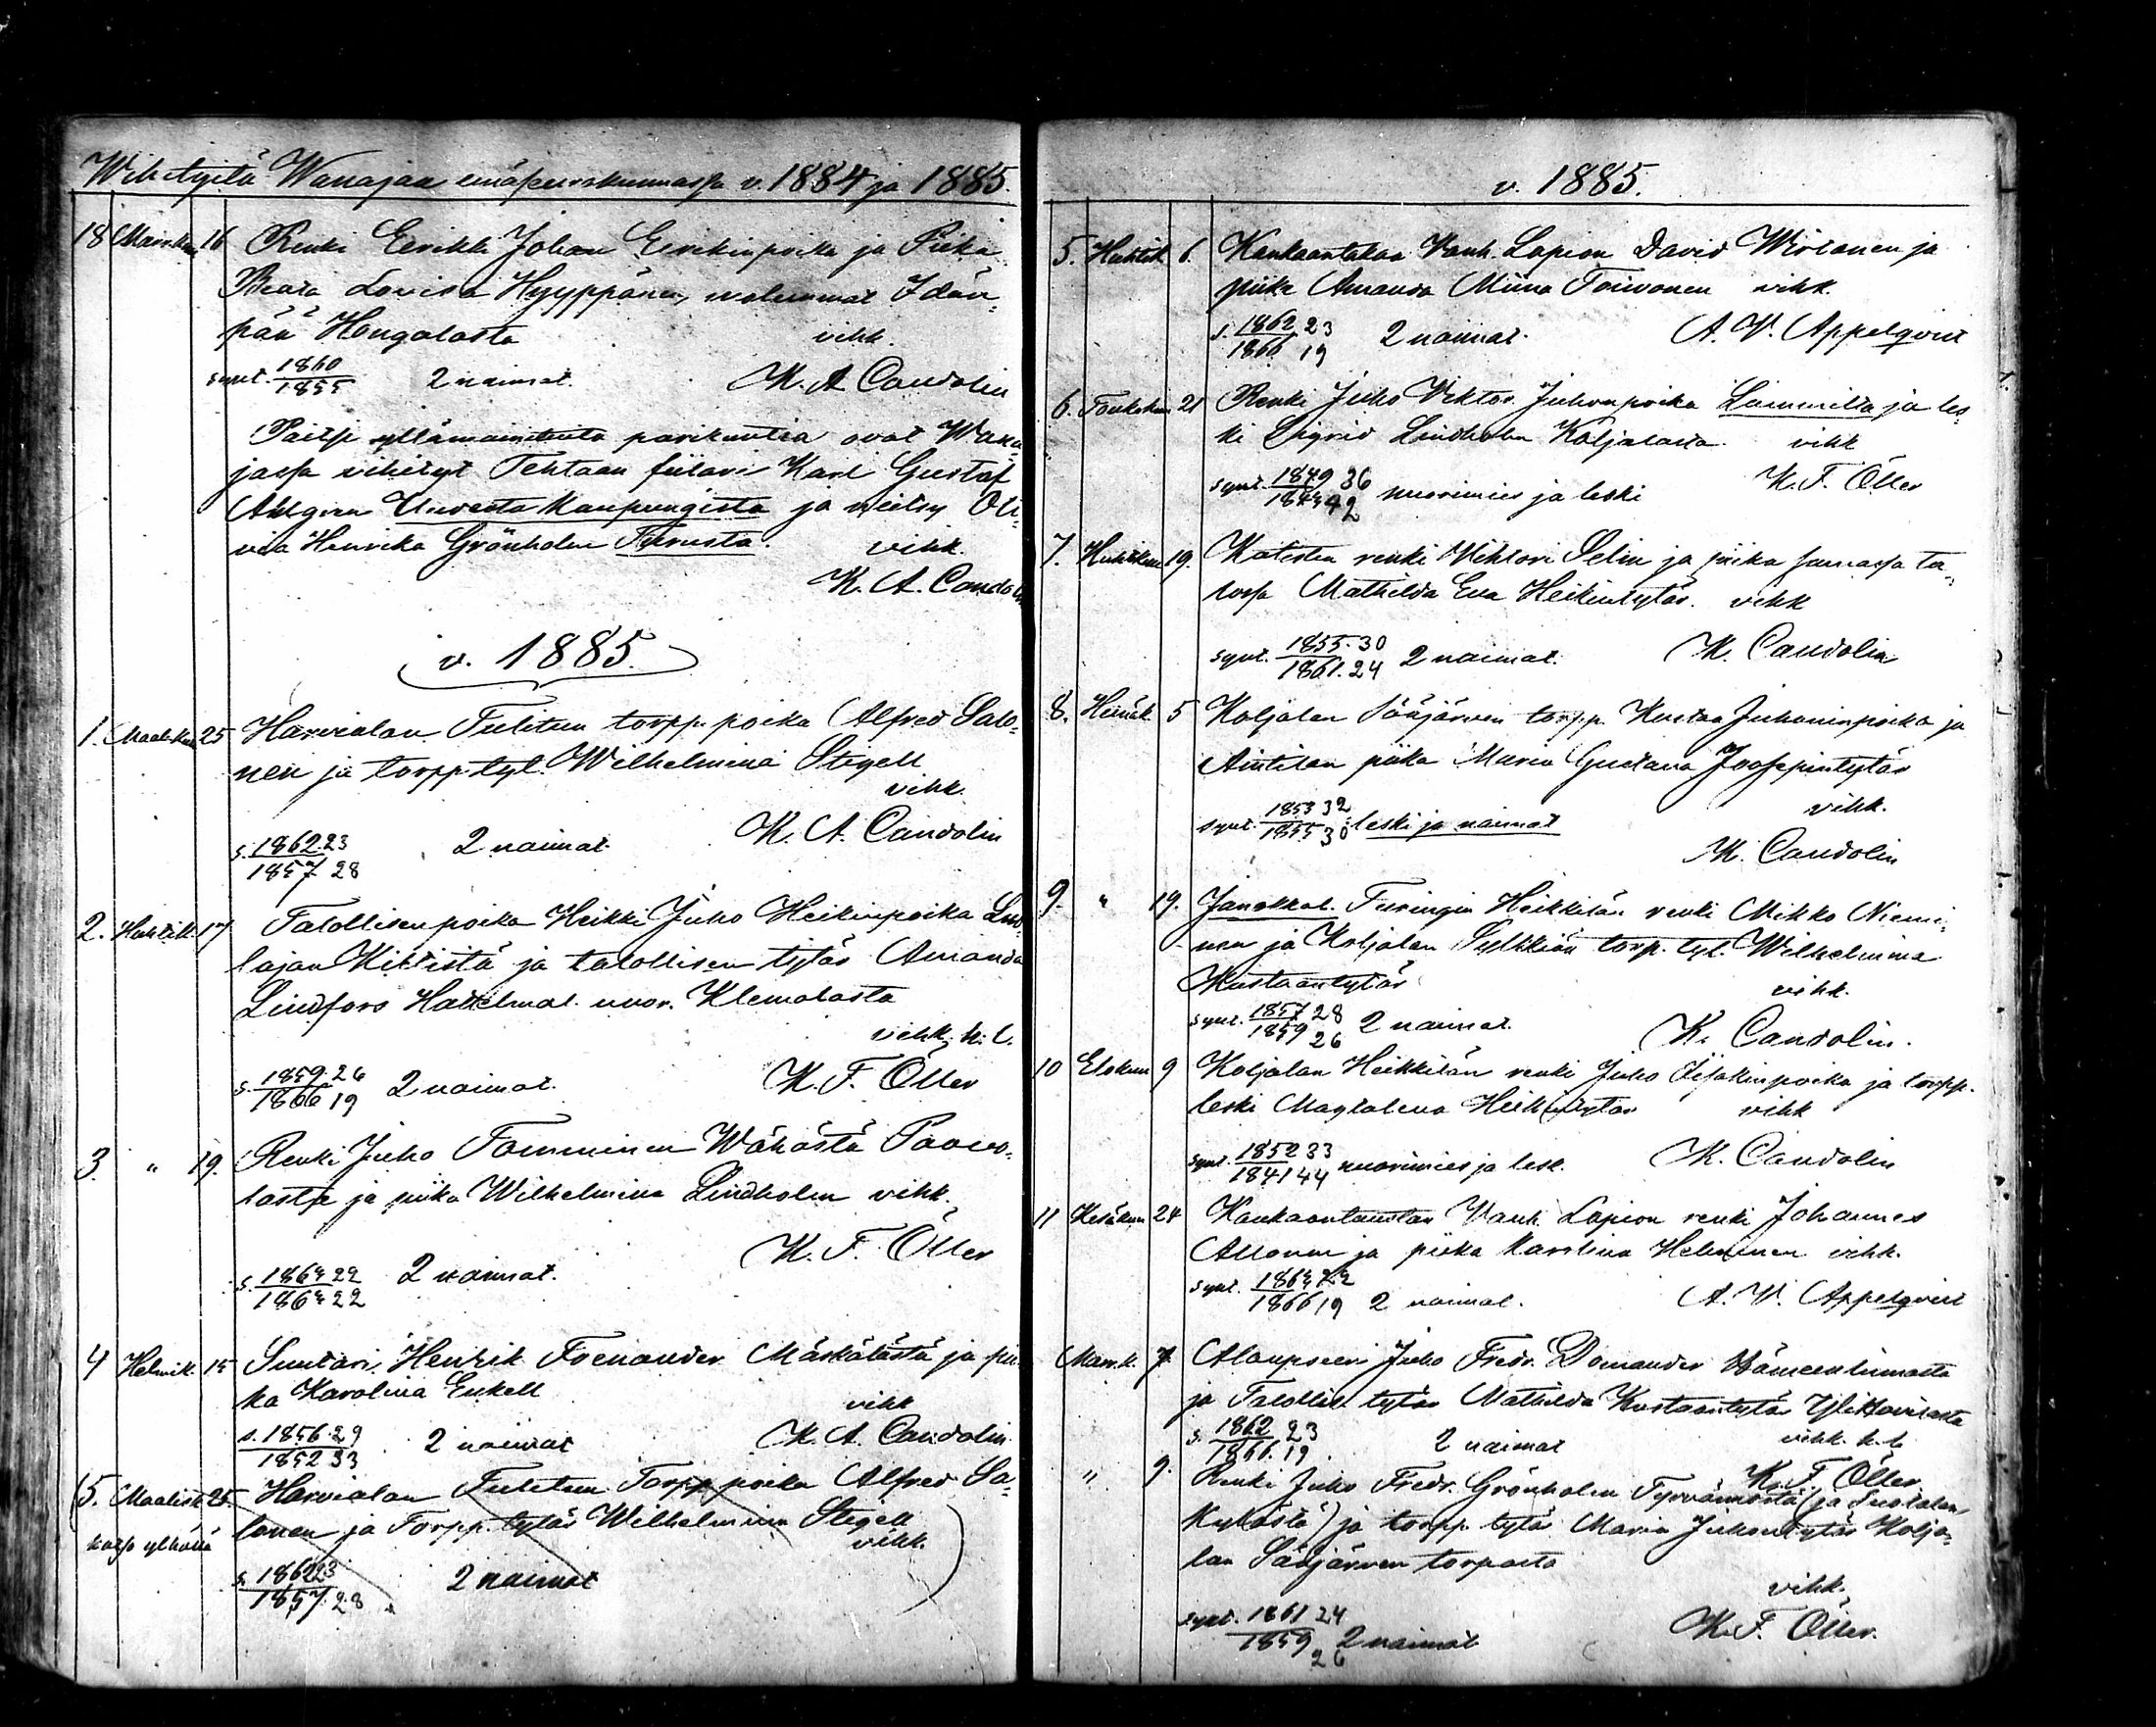 Wihityitä Wanajan emäseurakunnassa v. 1884 ja 1885.
18 Marrask. 16 Renki Eerikki Johan Eerikinpoika ja Piika
Beata Lovisa Hyyppänen, molemmat Idän-
pään Hongalasta vihk.
synt. 1860 / 1855 2 naimat. K. A. Candolin
Paitsi yllämainituita parikuntia ovat Wana-
jassa vihityt Tehtaan Karl Gustaf
Ahlgren Uuvesta Kaupungista ja neitsy Oli-
via Henrika Grönholm Turusta. vihk.
K. A. Candolin
v. 1885.
1. Maalisk. 25 Harvialan Tulitun torpp. poika Alfred Salo-
nen ja torpp. tyt. Wilhelmina Stigell
vihk.
s. 1862 23 / 1857 28 2 naimat. K. A. Candolin
2. Huhtik. 17 Talollisen poika Heikki Juho Heikinpoika
lajan ja talollisen tytär Amanda
Lindfors Hattelmal. nuor. Klemolasta
vihk. k. l.
s. 1859 26 / 1866 19 2 naimat. K. F. Öller
3. " 19. Renki Juho Tamminen Wähästä Paavo-
lasta ja piika Wilhelmina Lindholm vihk.
K. F. Öller
s. 1863 22 / 1863 22 2 naimat.
4 Helmik. 15 Suutari Henrik Forenander Mäskälästä ja pii-
ka Karolina Enkell vihk
s. 1856 29 / 1852 33 2 naimat K. A. Candolin
(5. Maalisk 25. Harvialan Tulitun Torpp poika Alfred Sa-
katso ylhäältä lonen ja Torpp. tytär Wilhelmina Stigell
vihk.
s. 1862 23 / 1857 28 2 naimat )
v. 1885.
5. Huhtik 6. Kankaantakaa Vanh. Lapion David Wirtanen ja
piika Amanda Miina Toivonen vihk.
s. 1862 23 / 1866 19 2 naimat. A. V. Appelqvist
6. Toukokuu 21 Renki Juho Viktor Juhonpoika Lammilta ja les-
ki Sigrid Lindholm Koljalasta vihk
synt. 1849 36 / 1843 42 nuorimies ja leski K. F. Öller
7. Huhtikuu 19. renki Vihtori Selin ja piika samassa ta-
lossa Mathilda Eva Heikintytär. vihk
synt. 1855. 30 / 1861. 24 2 naimat. K. Candolin
8. Heinäk 5 Koljalan Sääjärven torpp. Kustaa Juhaninpoika ja
Anttilan piika Maria Gustava Joosepintytär
vihk.
synt. 1853 32 / 1855 30 leski ja naimat
K. Candolin
9. " 19. Janakkal. Turingin Heikkilän renki Mikko Niemi-
nen ja Koljalan torp. tyt. Wilhelmina
Kustaantytär vihk.
synt. 1857 28 / 1859 26 2 naimat. K. Candolin.
10 Elokuu 9 Koljalan Heikkilän renki Juho Iisakinpoika ja torpp.
leski Magdalena Heikintytär vihk
synt. 1852 33 / 1841 44 nuorimies ja lesk. K. Candolin
11 Kesäkuu 24 Kankaantaustan Vanh. Lapion renki Johannes
Allonen ja piika Karolina Helminen vihk.
synt. 1863 22 / 1866 19 2 naimat. A. V. Appelqvist
Marr.k. 7. Aliupseeri Juho Fredr. Domander Hämeenlinnasta
ja Talollis tytär Mathilda Kustaantytär
s. 1862 23 / 1866. 19 2 naimat vihk. k. l.
K. F. Öller
" 9. Renki Juho Fredr. Grönholm Tyrvännöstä (ja Suotalan
Kylästä) ja torpp. tytär Maria Juhontytär Kolja-
lan Sääjärven torpasta
vihk.
synt. 1861 24 / 1859 26 2 naimat K. F. Öller.